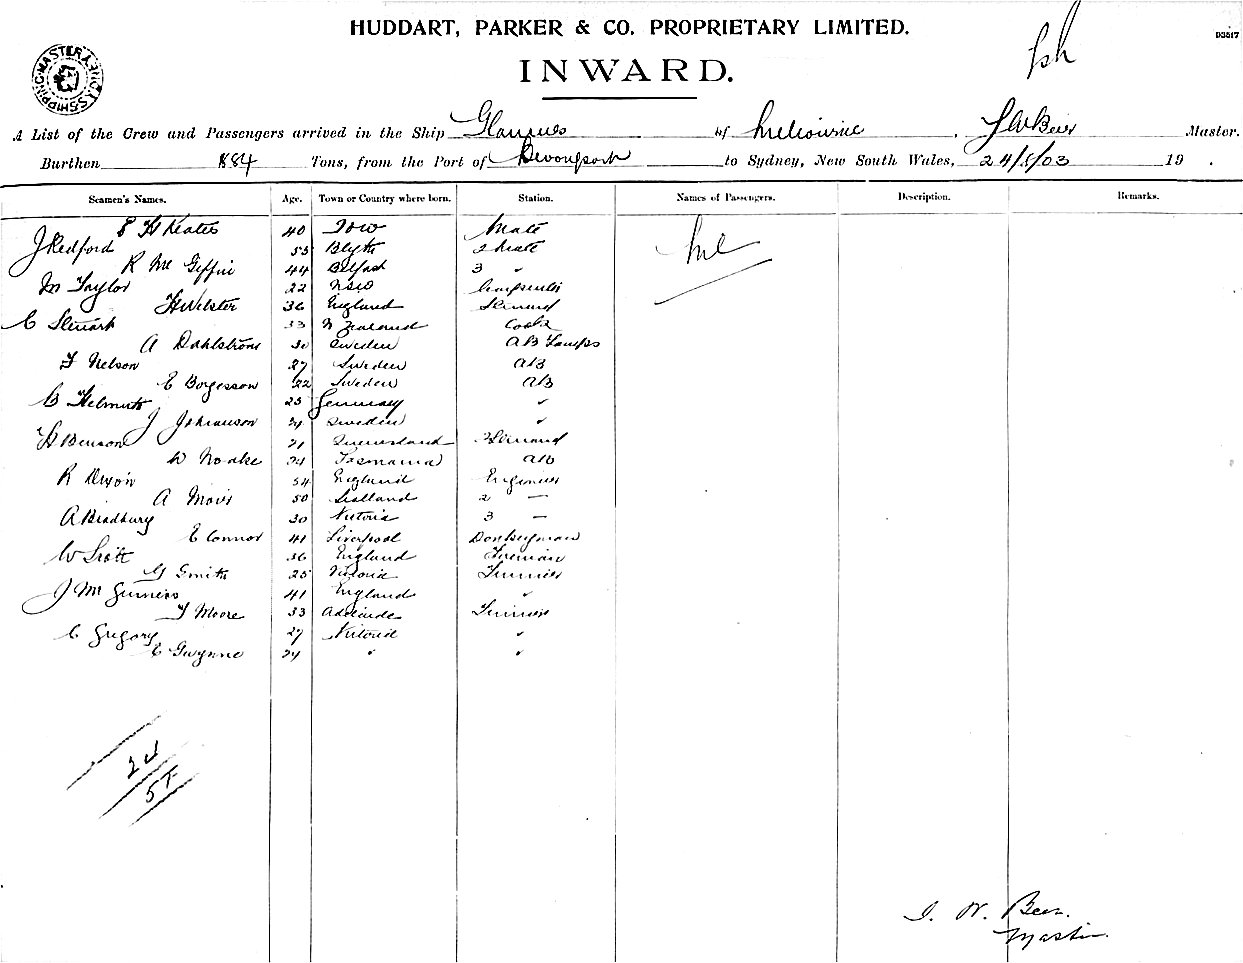 HUDDART, PARKER & CO. PROPRIETARY LIMITED.
D3517
INWARD.
SHIPPING MASTER SYDNEY
A List of the Crew and Passengers arrived in the Ship Glaucus of Melbourne, J W Beer Master.
Burthen 884 Tons, from the Port of Devonport to Sydney, New South Wales, 24/5/03 19 .
Seamen's Names. Age. Town or Country where born. Station. Names of Passengers. Description. Remarks.
E H Keates 40 Mate Nil
J Redford 53 Blyth 2 Mate
R Mc Giffin 44 Belfast 3 "
M Taylor 22 NSW
H Webster 36 England Steward
C Stewart 33 N Zealand Cook
A Dahlström 30 Sweden AB Lamps
F Nelson 27 Sweden AB
E Borgesson 22 Sweden AB
C Helmuth 25 Germany "
J Johansson 24 Sweden "
H Benson 21 Queensland 2 Steward
W Noake 24 Tasmania AB
R Dixon 54 England Engineer
A Moir 50 Scotland 2 —
A Bradbury 30 Victoria 3 —
E Connor 41 Liverpool Donkeyman
W Scott 36 England Fireman
G Smith 25 Victoria Trimmer
J Mc Guiness 41 England "
T Moore 33 Adelaide Trimmer
C Gregory 27 Victoria "
C Gwynne 24 " "
J. W. Beer.
Master